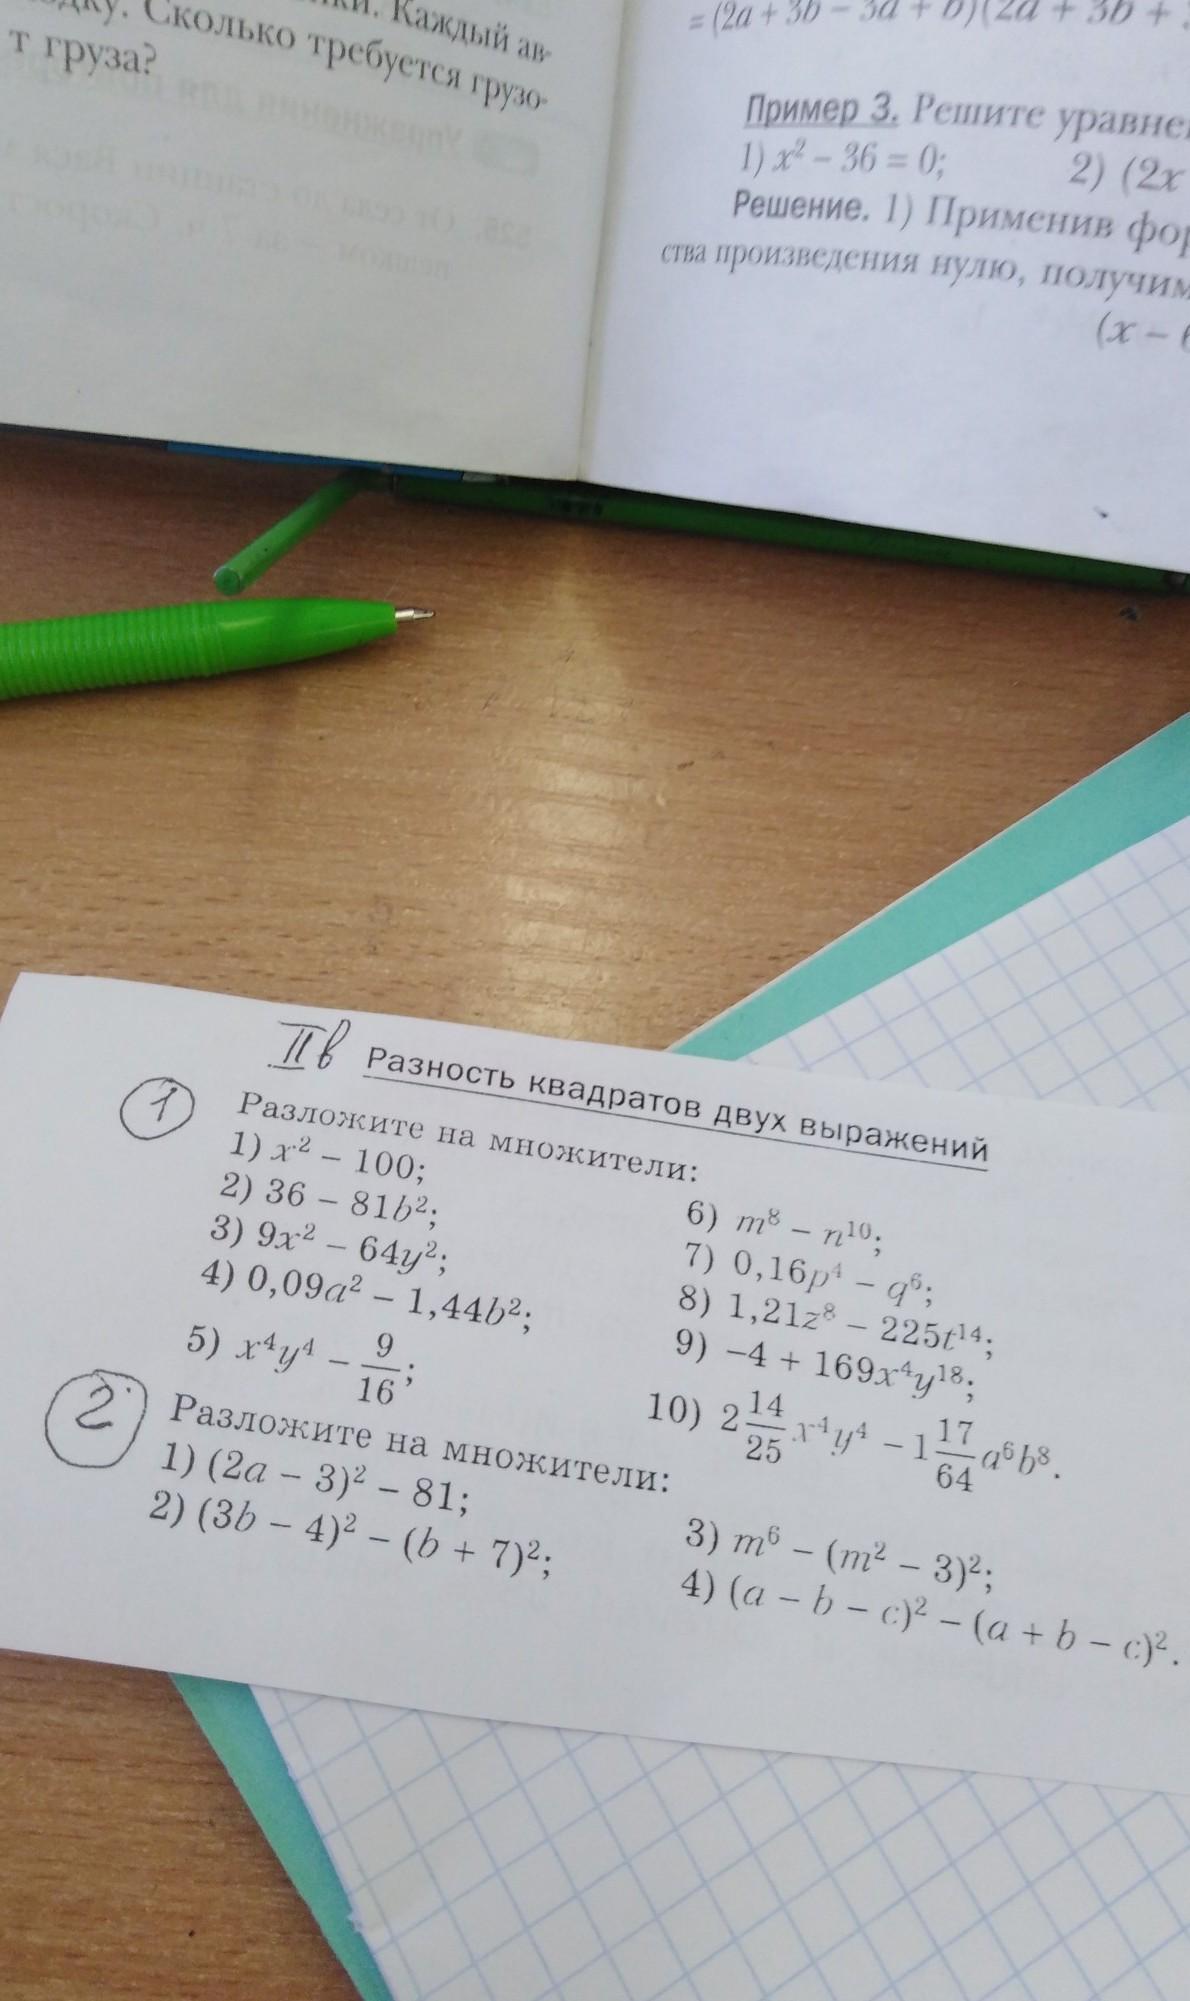 Каждый ав-
Сколько требуется грузо-
т груза?
= (2a + 3b − 3a + b)(2a + 3b +
Пример 3. Решите
1) x² − 36 = 0; 2) (2x
Решение. 1) Применив
ства произведения нулю, получим
(x −
IIв Разность квадратов двух выражений
1 Разложите на множители:
1) x² − 100;
2) 36 − 81b²;
3) 9x² − 64y²;
4) 0,09a² − 1,44b²;
5) x⁴y⁴ − 9/16;
6) m⁸ − n¹⁰;
7) 0,16p⁴ − q⁶;
8) 1,21z⁸ − 225t¹⁴;
9) −4 + 169x⁴y¹⁸;
10) 2 14/25 x⁴y⁴ − 1 17/64 a⁶b⁸.
2 Разложите на множители:
1) (2a − 3)² − 81;
2) (3b − 4)² − (b + 7)²;
3) m⁶ − (m² − 3)²;
4) (a − b − c)² − (a + b − c)².